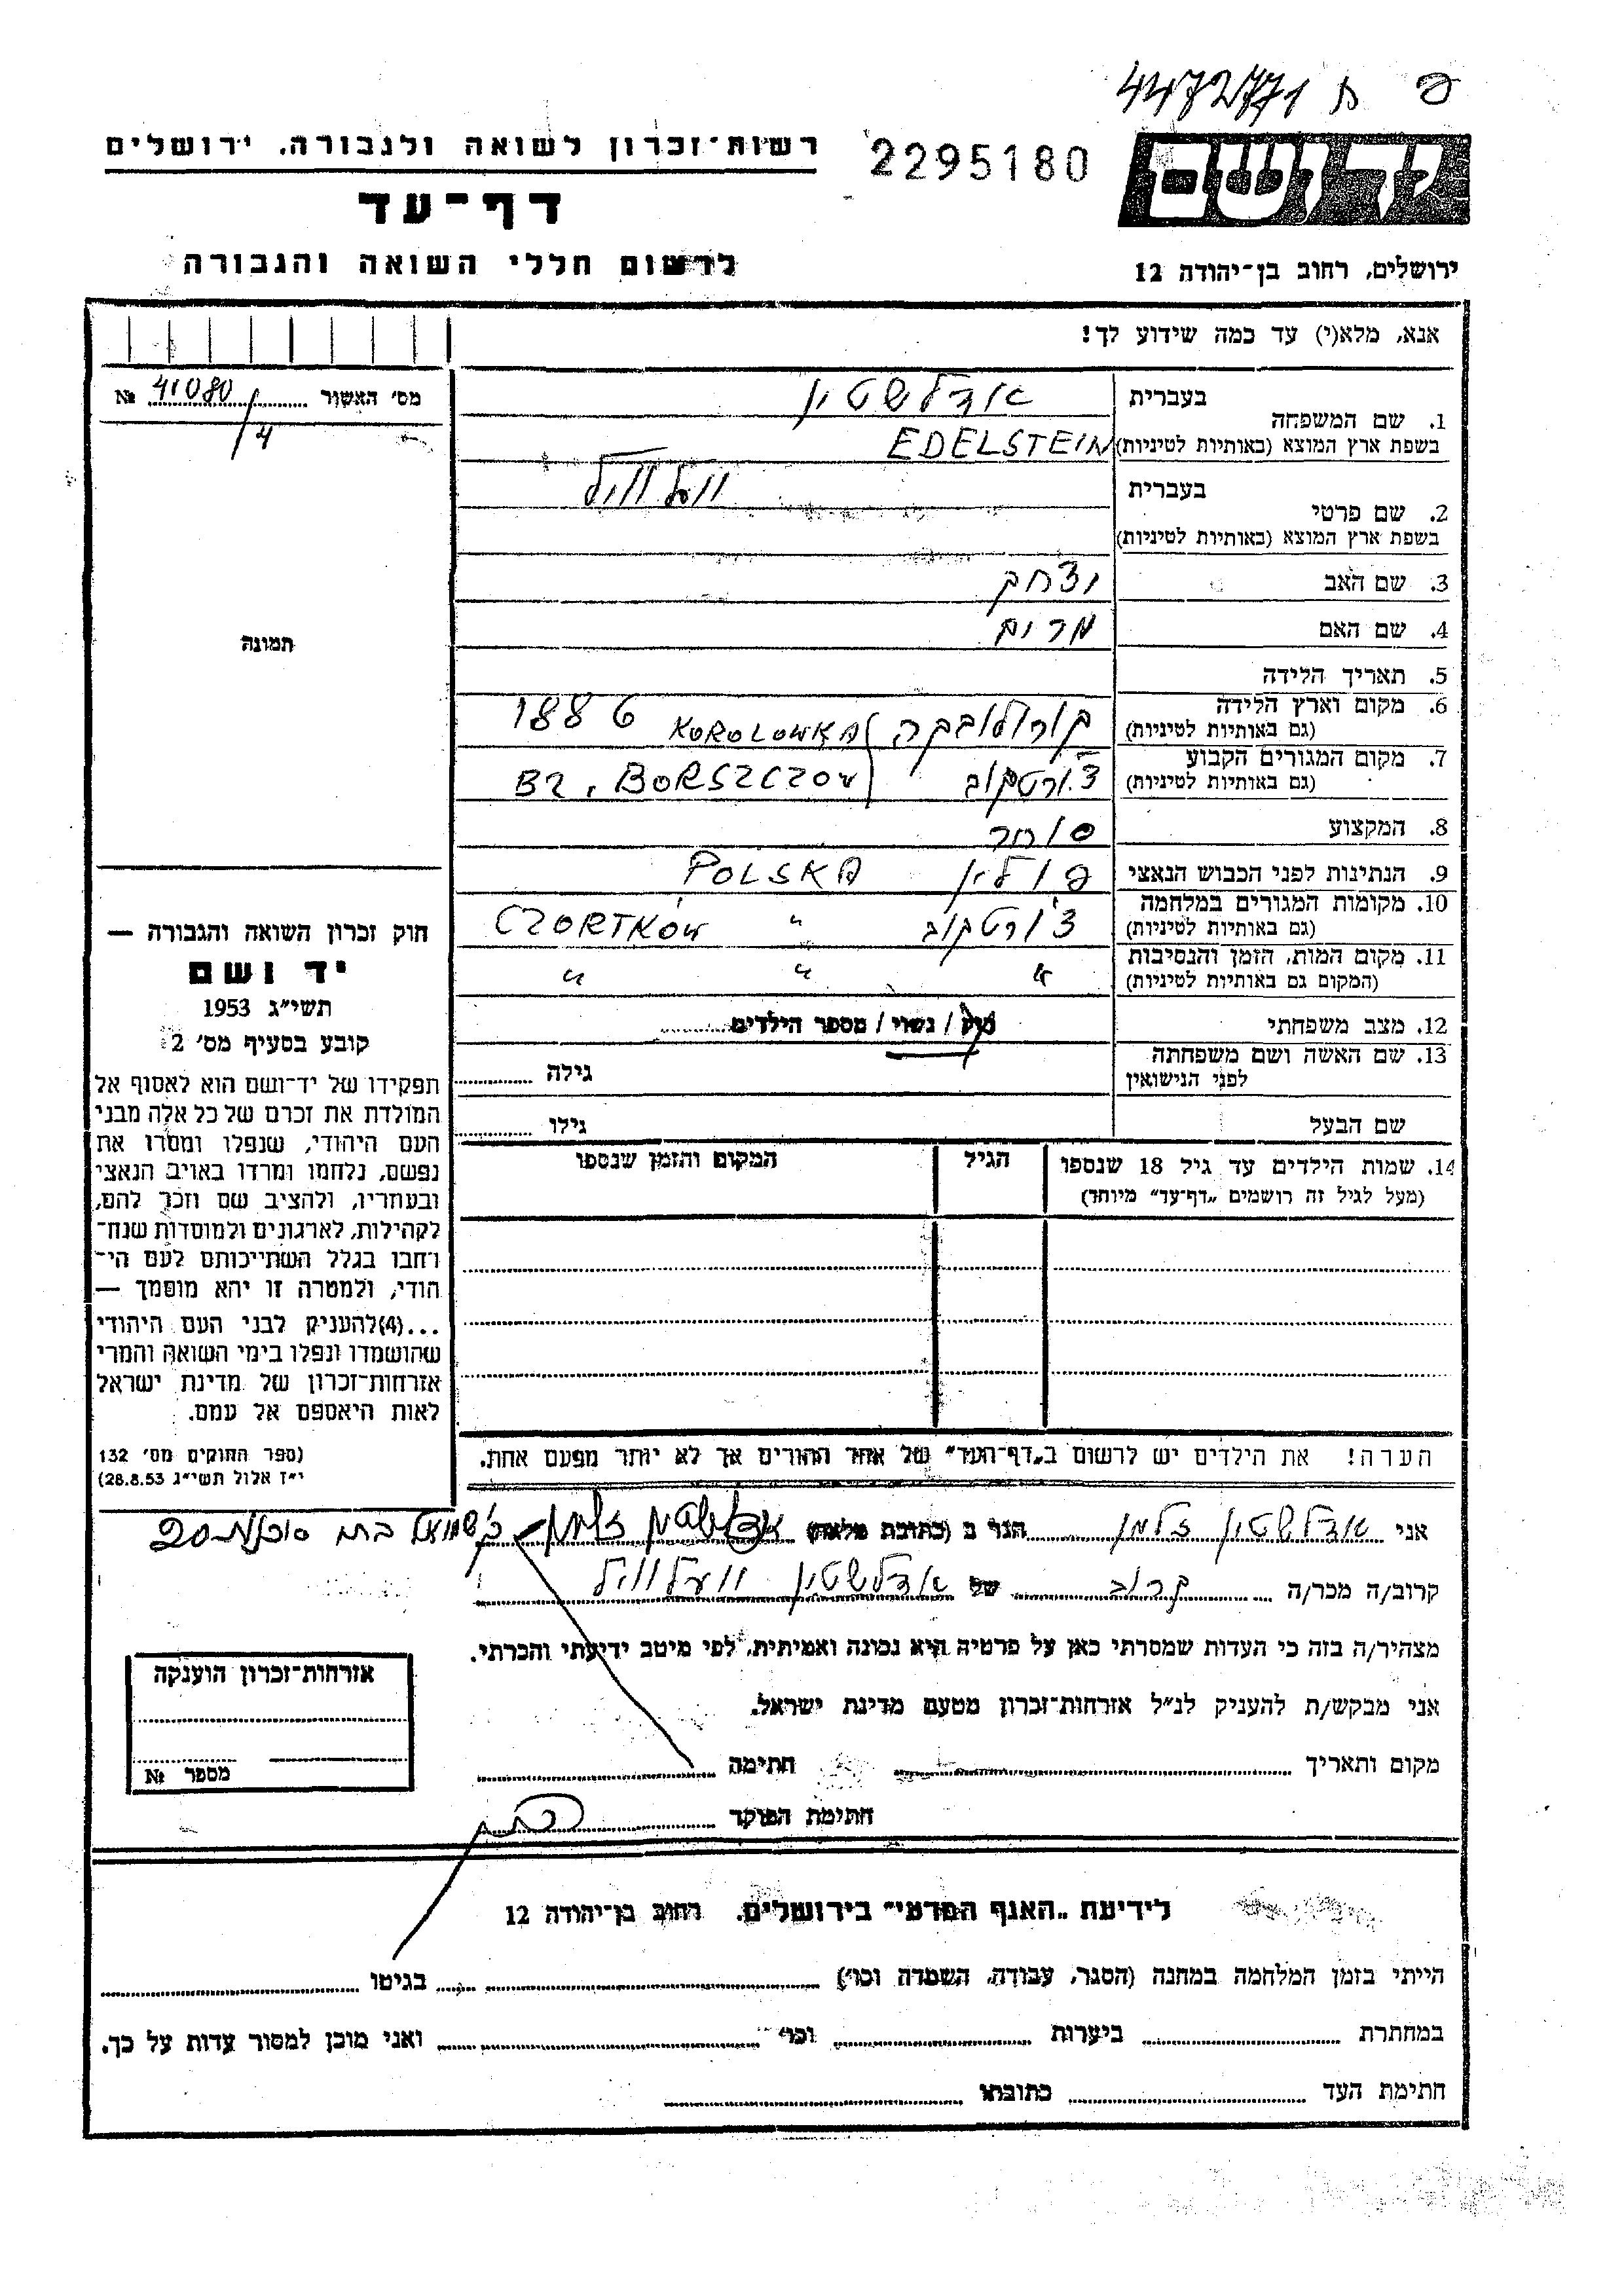 4472771
2295180
יד ושם
רשות־זכרון לשואה ולגבורה. ירושלים
דף־עד
לרשום חללי השואה והגבורה
ירושלים, רחוב בן־יהודה 12
אנא, מלא(י) עד כמה שידוע לך!
מס׳ האשור 41080/4 №
1. שם המשפחה בעברית אדלשטין
בשפת ארץ המוצא (באותיות לטיניות) EDELSTEIN
2. שם פרטי בעברית וועלוויל
בשפת ארץ המוצא (באותיות לטיניות)
3. שם האב יצחק
4. שם האם מרים
5. תאריך הלידה 1886
6. מקום וארץ הלידה קורולובקה KOROLOWKA
(גם באותיות לטיניות)
7. מקום המגורים הקבוע צ׳ורטקוב BZ. BORSZCZOW
(גם באותיות לטיניות)
8. המקצוע סוחר
9. הנתינות לפני הכבוש הנאצי פולין POLSKA
10. מקומות המגורים במלחמה צ׳ורטקוב " CZORTKÓW
(גם באותיות לטיניות)
11. מקום המות, הזמן והנסיבות " " "
(המקום גם באותיות לטיניות)
12. מצב משפחתי רוק / נשוי / מספר הילדים
13. שם האשה ושם משפחתה גילה
לפני הנישואין
שם הבעל גילו
14. שמות הילדים עד גיל 18 שנספו הגיל המקום והזמן שנספו
(מעל לגיל זה רושמים „דף־עד" מיוחד)
הערה! את הילדים יש לרשום ב„דף־העד" של אחד ההורים אך לא יותר מפעם אחת.
תמונה
חוק זכרון השואה והגבורה —
יד ושם
תשי״ג 1953
קובע בסעיף מס׳ 2:
תפקידו של יד־ושם הוא לאסוף אל
המולדת את זכרם של כל אלה מבני
העם היהודי, שנפלו ומסרו את
נפשם, נלחמו ומרדו באויב הנאצי
ובעוזריו, ולהציב שם וזכר להם,
לקהילות, לארגונים ולמוסדות שנח־
רחבו בגלל השתייכותם לעם הי־
הודי, ולמטרה זו יהא מוסמך —
...(4)להעניק לבני העם היהודי
שהושמדו ונפלו בימי השואה והמרי
אזרחות־זכרון של מדינת ישראל
לאות היאספם אל עמם.
(ספר החוקים מס׳ 132
י״ז אלול תשי״ג 28.8.53)
אני אדלשטין זלמן הגר ב (כתובת מלאה) אדלשטין זלמן בת־ים 20
קרוב/ה מכר/ה קרוב של אדלשטין וועלוויל
מצהיר/ה בזה כי העדות שמסרתי כאן על פרטיה היא נכונה ואמיתית, לפי מיטב ידיעתי והכרתי.
אני מבקש/ת להעניק לנ״ל אזרחות־זכרון מטעם מדינת ישראל.
מקום ותאריך חתימה
חתימת הפוקד
אזרחות־זכרון הוענקה
מספר №
לידיעת „האגף הפרטי" בירושלים. רחוב בן־יהודה 12
הייתי בזמן המלחמה במחנה (הסגר, עבודה, השמדה וכו׳) בגיטו
במחתרת ביערות וכו׳ ואני מוכן למסור עדות על כך.
חתימת העד כתובתו